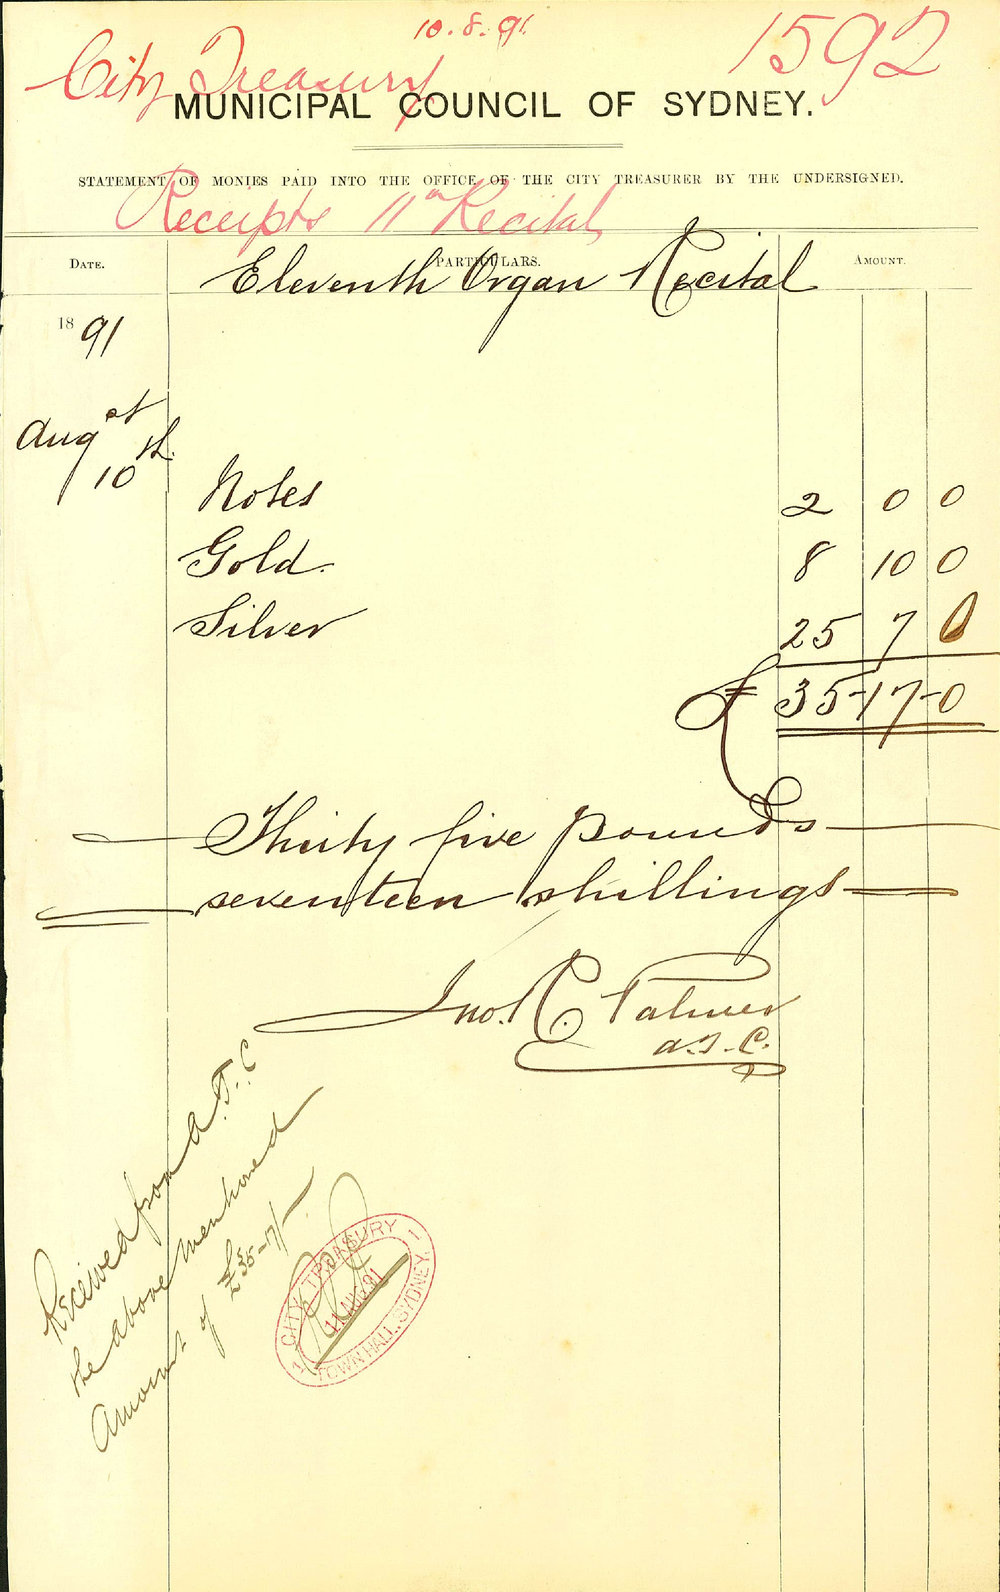 10.8.91
1592
City Treasury
MUNICIPAL COUNCIL OF SYDNEY.
STATEMENT OF MONIES PAID INTO THE OFFICE OF THE CITY TREASURER BY THE UNDERSIGNED.
Receipts 11th Recital
DATE. PARTICULARS. AMOUNT.
Eleventh Organ Recital
18 91
Augst
10th
Notes 2 0 0
Gold. 8 10 0
Silver 25 7 0
£ 35-17-0
Thirty five pounds
seventeen shillings
Jno. R. C. Palmer
A.T.C.
Received from A.T.C
the above mentioned
Amount of £35-17/-
CITY TREASURY
11 AUG 91
TOWN HALL, SYDNEY.